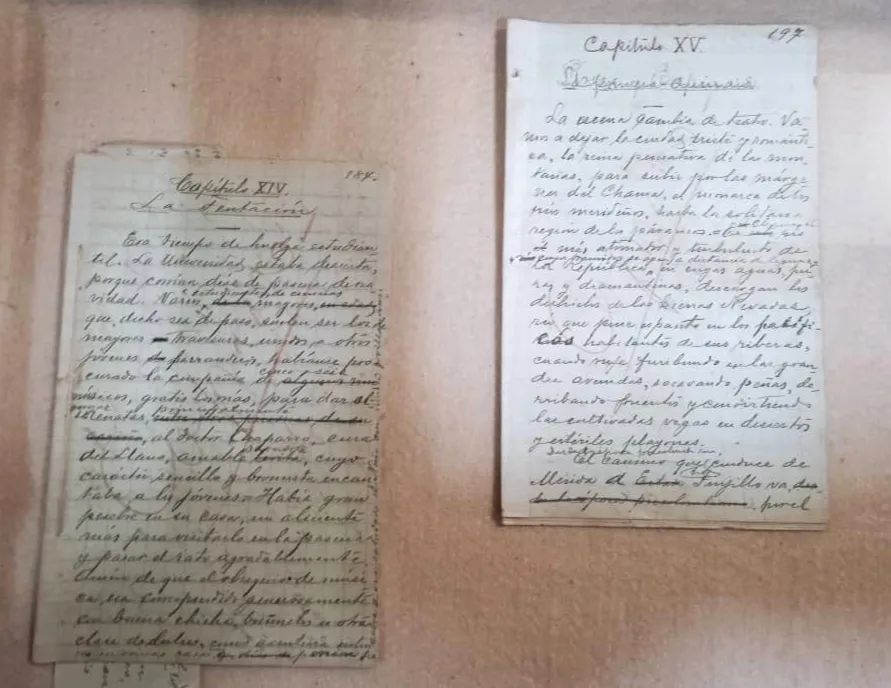 184.
Capítulo XIV.
La tentación
Era tiempo de huelga estudian-
til. La Universidad estaba desierta,
porque corrían días de pascua de na-
vidad. Varios estudiantes de ciencias
mayores,
que, dicho sea de paso, suelen ser los
mayores traviesos, unidos a otros
jóvenes parranderos, habíanse pro-
curado la compañía de cinco o seis
músicos, gratis los más, para dar
principalmente
al Doctor Chaparro, cura
del Llano, amable cuyo
carácter sencillo y bromista encan-
taba a los jóvenes. Había gran
pesebre en su casa, un aliciente
más para visitarlo en la pascua
y pasar el rato agradablemente,
amén de que el obsequio de músi-
ca era correspondido generosamente
con buena chicha, buñuelos u otra
clase de dulce, como
197
Capítulo XV.
La escena cambia de teatro. Va-
mos a dejar la ciudad triste y románti-
ca, la reina pensativa de las mon-
tañas, para subir por las márge-
nes del Chama, el monarca de los
ríos merideños, hasta la solitaria
región de los páramos. río
más atronador y turbulento de
la República, en cuyas aguas, pu-
ras y diamantinas, descargan los
deshielos de las Sierras Nevadas,
y que pone espanto en los pacífi-
cos habitantes de sus riberas,
cuando ruge furibundo en las gran-
des avenidas, socavando peñas, de-
rribando puentes y convirtiendo
las cultivadas vegas en desiertos
y estériles playones.
El camino que conduce de
Mérida a Trujillo va,
por el